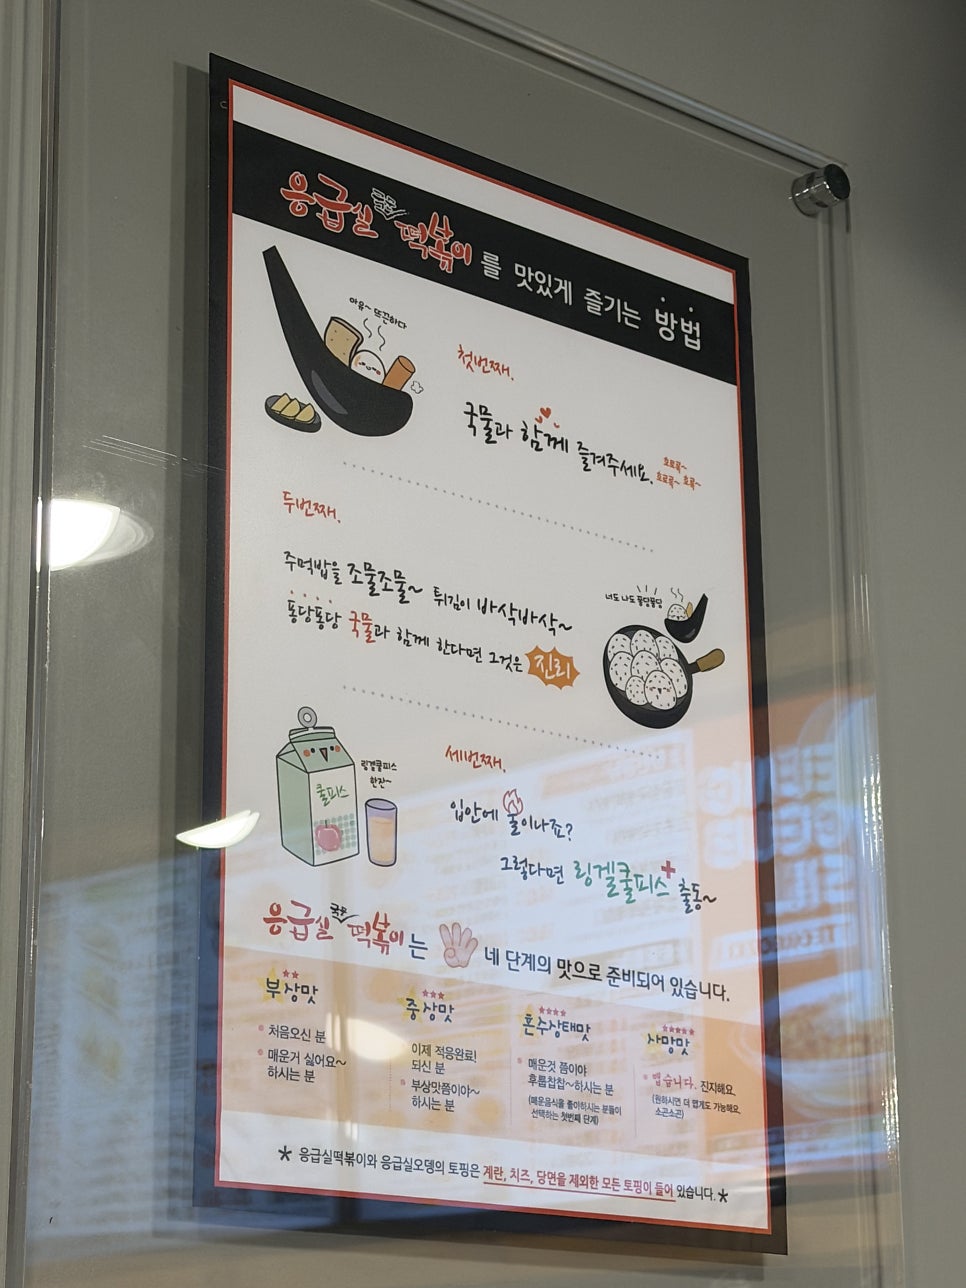 응급실 국물 떡볶이 를 맛있게 즐기는 방법
아유~ 뜨끈하다
첫번째.
국물과 함께 즐겨주세요.
호로록~
호로록~ 호록~
두번째.
주먹밥을 조물조물~ 튀김이 바삭바삭~
퐁당퐁당 국물과 함께 한다면 그것은 진리
너도 나도 퐁당퐁당
쿨피스
링겔쿨피스
한잔~
세번째.
입안에 불이나죠?
그렇다면 링겔쿨피스 출동~
응급실 국물 떡볶이는 네 단계의 맛으로 준비되어 있습니다.
부상맛
처음오신 분
매운거 싫어요~
하시는 분
중상맛
이제 적응완료!
되신 분
부상맛쯤이야~
하시는 분
혼수상태맛
매운것 쯤이야
후룹찹찹~하시는 분
(매운음식을 좋아하시는 분들이
선택하는 첫번째 단계)
사망맛
맵습니다. 진지해요
(원하시면 더 맵게도 가능해요.
소곤소곤)
* 응급실떡볶이와 응급실오뎅의 토핑은 계란, 치즈, 당면을 제외한 모든 토핑이 들어 있습니다. *